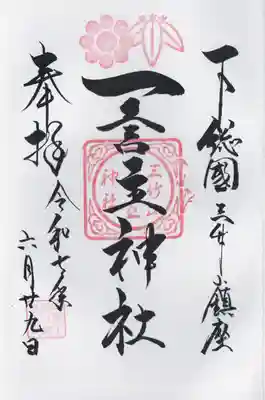 下総國三竹山鎮座
一言主神社
奉拝
令和七年
六月廿九日